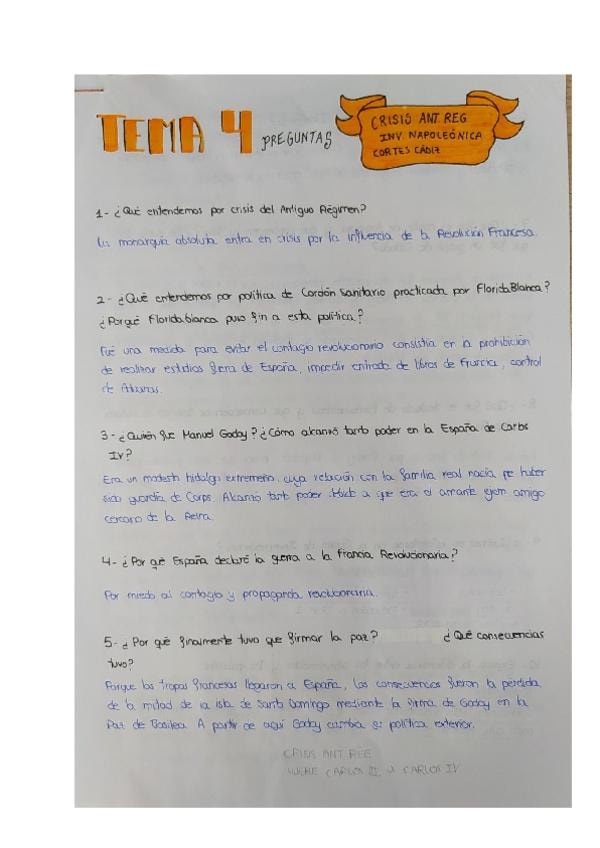 TEMA 4 PREGUNTAS
CRISIS ANT. REG
INV. NAPOLEÓNICA
CORTES CÁDIZ
1- ¿Qué entendemos por crisis del Antiguo Régimen?
La monarquía absoluta entra en crisis por la influencia de la Revolución Francesa.
2- ¿Qué entendemos por política de Cordón Sanitario practicada por FloridaBlanca?
¿Porqué Floridablanca puso fin a esta política?
Fue una medida para evitar el contagio revolucionario consistía en la prohibición
de realizar estudios fuera de España, impedir entrada de libros de Francia, control
de Aduanas.
3- ¿Quién fue Manuel Godoy? ¿Cómo alcanzó tanto poder en la España de Carlos
IV?
Era un modesto hidalgo extremeño, cuya relación con la familia real nacía por haber
sido guardia de Corps. Alcanzó tanto poder debido a que era el amante ejem amigo
cercano de la Reina.
4- ¿Por qué España declaró la guerra a la Francia Revolucionaria?
Por miedo al contagio y propaganda revolucionaria.
5- ¿Por qué finalmente tuvo que firmar la paz? ¿Qué consecuencias
tuvo?
Porque las tropas francesas llegaron a España, las consecuencias fueron la pérdida
de la mitad de la isla de Santo Domingo mediante la firma de Godoy en la
Paz de Basilea. A partir de aquí Godoy cambia su política exterior.
CRISIS ANT REG
MUERE CARLOS III CARLOS IV